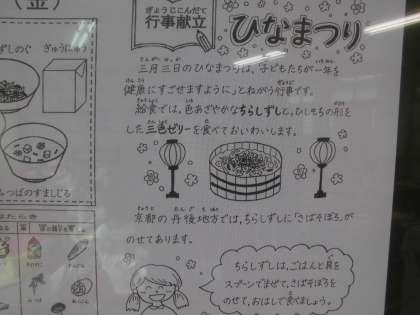 (金)
ぎょうじこんだて
行事献立
ひなまつり
ずしのぐ
ぎゅうにゅう
みつばのすましじる
三月三日のひなまつりは、「子どもたちが一年を
健康にすごせますように」とねがう行事です。
給食では、色あざやかなちらしずしと、ひしもちの形を
した三色ゼリーを食べておいわいします。
京都の丹後地方では、ちらしずしに「さばそぼろ」が
のせてあります。
ちらしずしは、ごはんと具を
スプーンでまぜて、さばそぼろを
のせて、おはしで食べましょう。